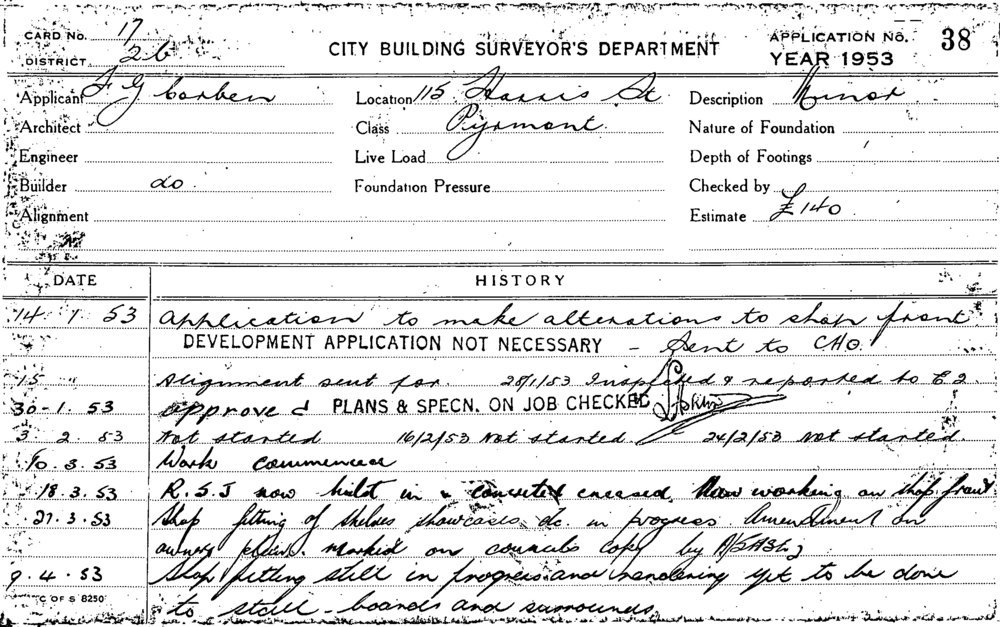 CARD No. 17
DISTRICT 26
CITY BUILDING SURVEYOR'S DEPARTMENT
APPLICATION No. 38
YEAR 1953
Applicant F G Corben
Location 115 Harris St
Description Minor
Architect
Class Pyrmont
Nature of Foundation
Engineer
Live Load
Depth of Footings
Builder do
Foundation Pressure
Checked by
Alignment
Estimate £140
DATE HISTORY
14 1 53 Application to make alterations to shop front
DEVELOPMENT APPLICATION NOT NECESSARY - Sent to CHO
15 " Alignment sent for. 28/1/53 Inspected & reported to
30-1. 53 approved PLANS & SPECN. ON JOB CHECKED
3. 2. 53 Not started 16/2/53 Not started. 24/2/53 Not started.
10. 3. 53 Work commenced
18. 3. 53 R.S.J now built in & concrete encased. Now working on shop front
27. 3. 53 Shop fitting of shelves showcases, etc. in progress. Amendment on
owners plan. marked on councils copy by
9. 4. 53 Shop fitting still in progress and rendering yet to be done
to stall-boards and surrounds.
C OF S 8250